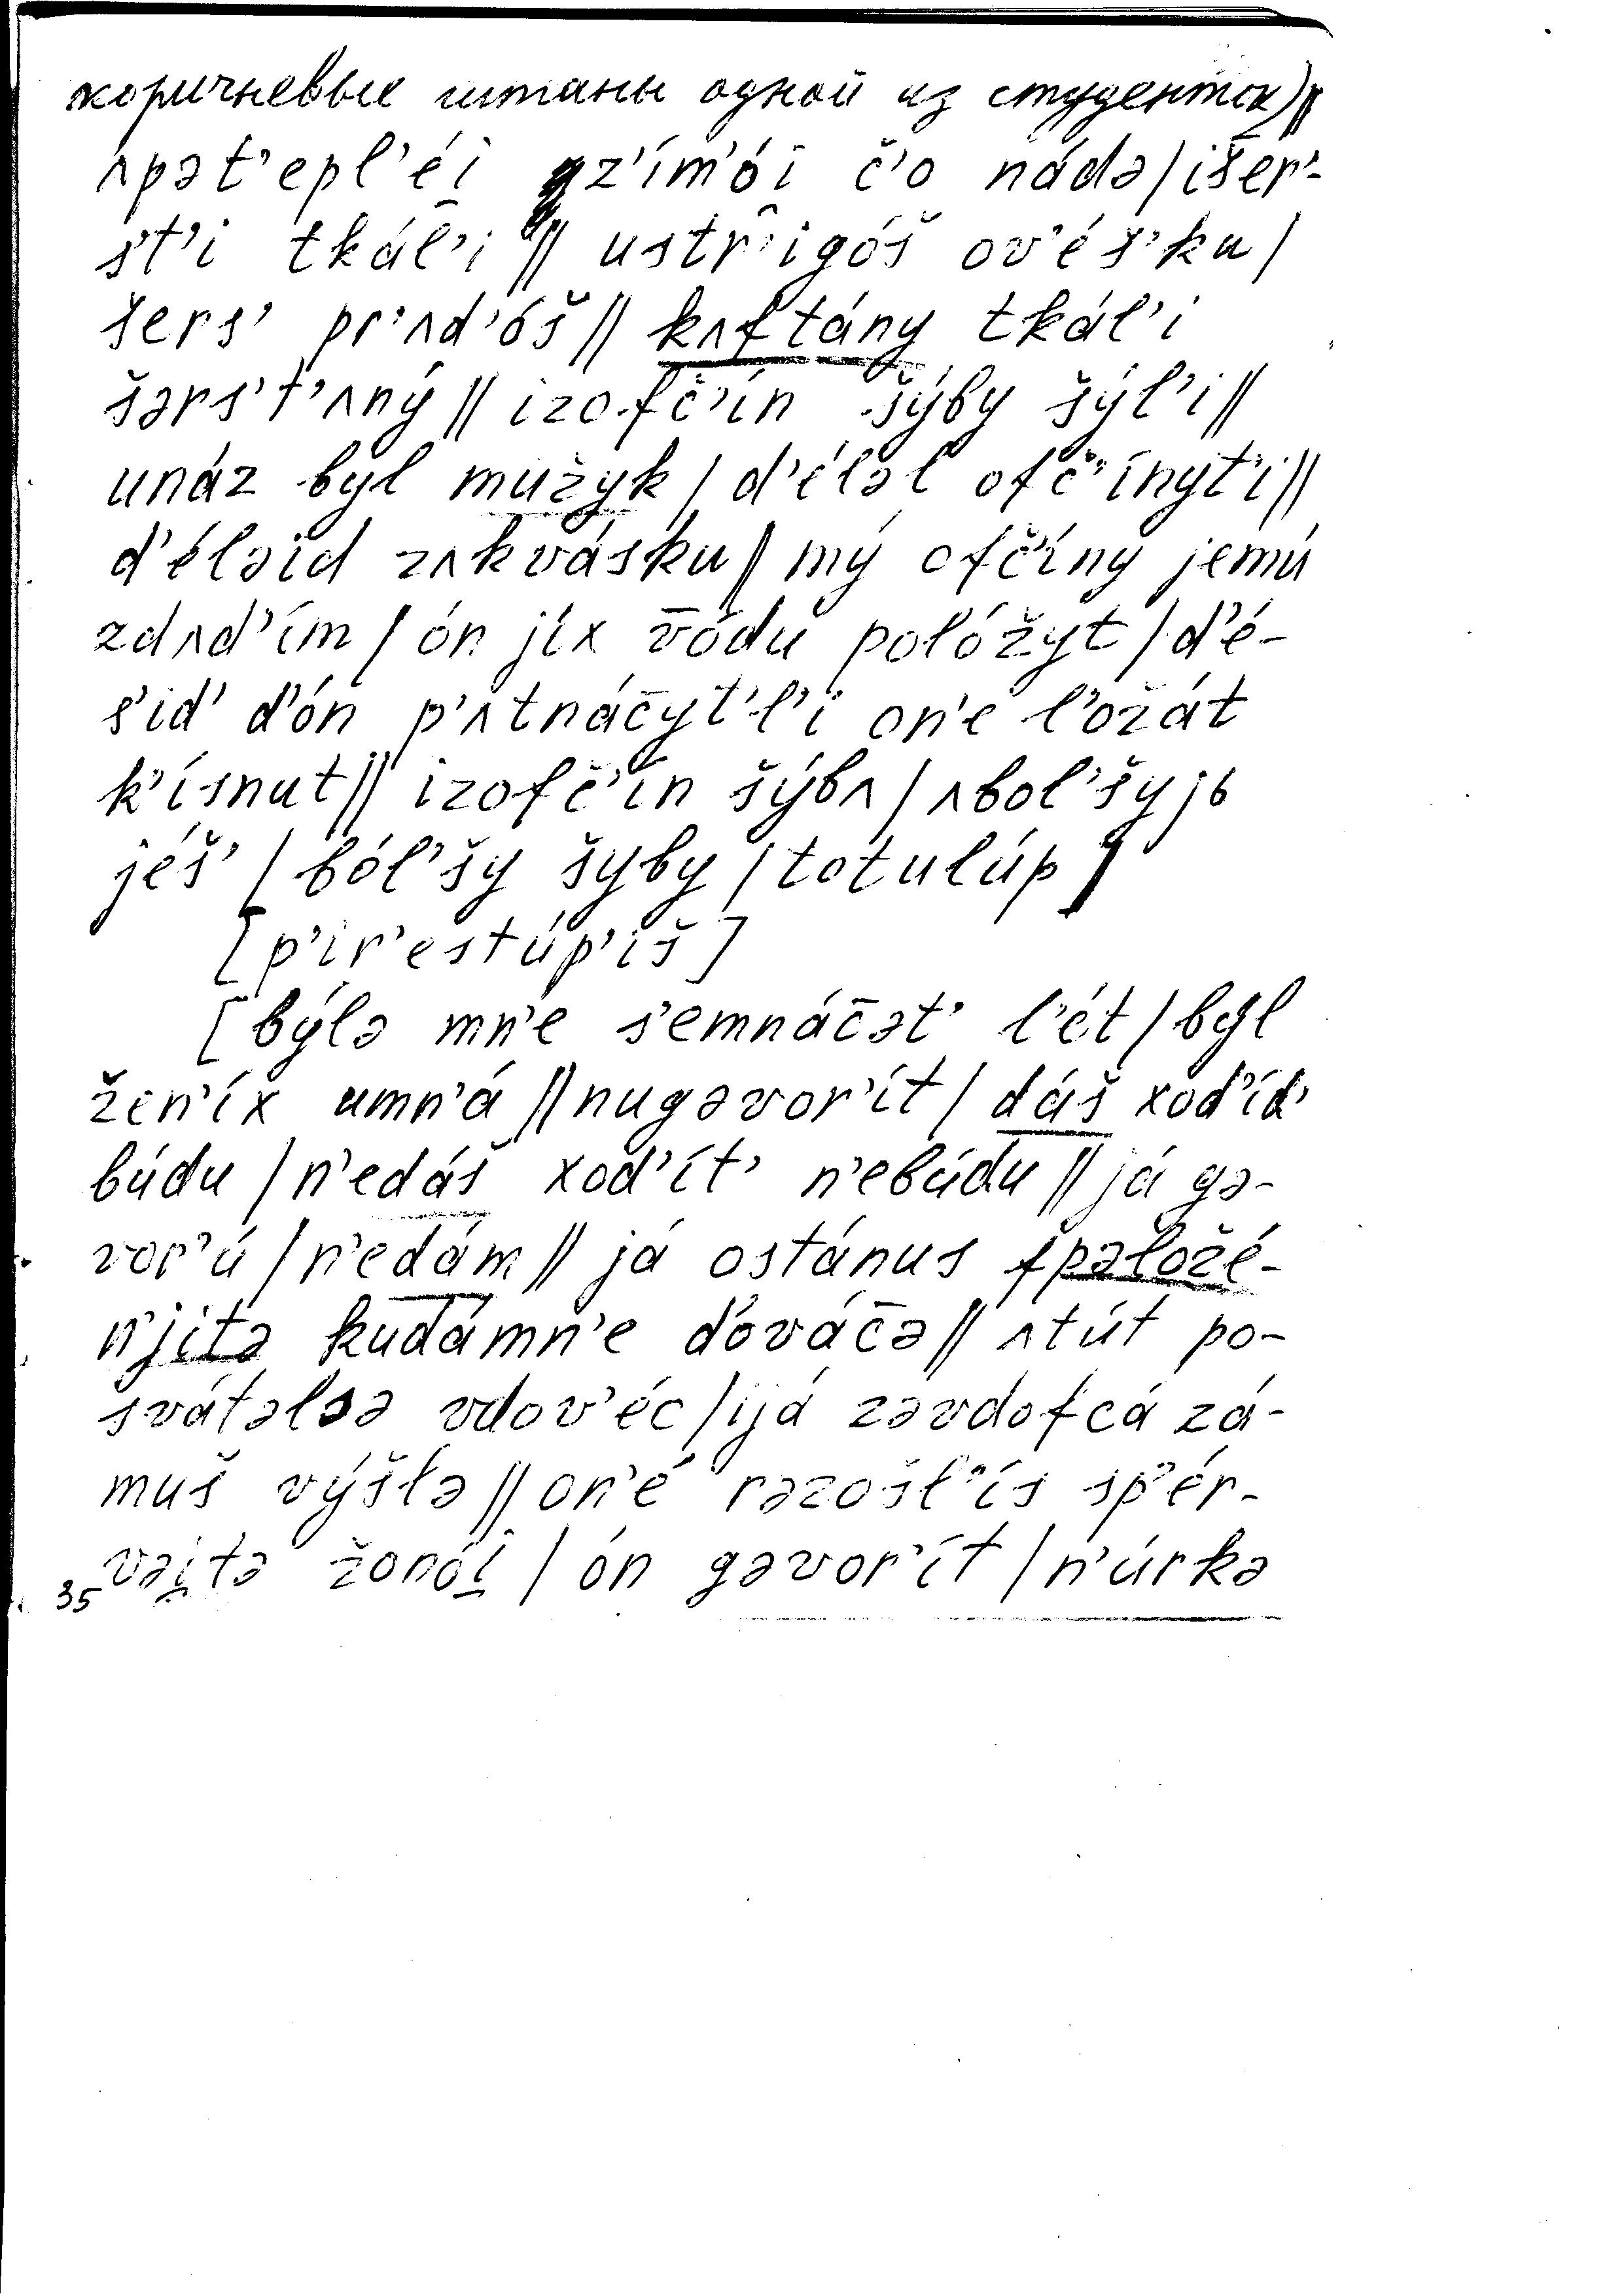 коричневые штаны одной из студенток)‖
ʌpət’epl’éi̯ z’ím’ói̯ č’o nádə/išer’-
s’t’i tkál’i‖ ustr’igóš ov’éš’ku/
šers’ pr’ʌd’óš‖ kʌftány tkál’i
šərs’t’ʌný‖ izofč’ín šýby šýl’i‖
unáz był mužyk/d’éləl ofč’ínyt’i‖
d’éləid zʌkvásku‖ mý ofč’íny jemú
zdʌd’ím/ón jíx v̄ódu połóžyt/d’é-
s’id’ d’ón p’ʌtnác̄yt’l’i on’e l’ožát
k’ísnut‖ izofč’ín šýbʌ/ʌbol’šyjь
jéš’/ból’šy šyby/totulúp]
[p’ir’estúp’iš]
[býlə mn’e s’emnác̄ət’ l’ét/był
žen’íx umn’á‖nugəvor’ít/dáš xod’íd’
búdu/n’edáš xod’ít’ n’ebúdu‖já gə-
vor’ú/n’edám‖ já ostánus fpəłožé-
n’jitə kudámn’e d’ovác̄ə‖ ʌtút po-
svátəlsə vdov’éc/ijá zəvdofcá zá-
muš výšłə‖on’é rəzošl’ís sp’ér-
vəi̯tə žonói̯/ón gəvor’ít/n’úrkə
35